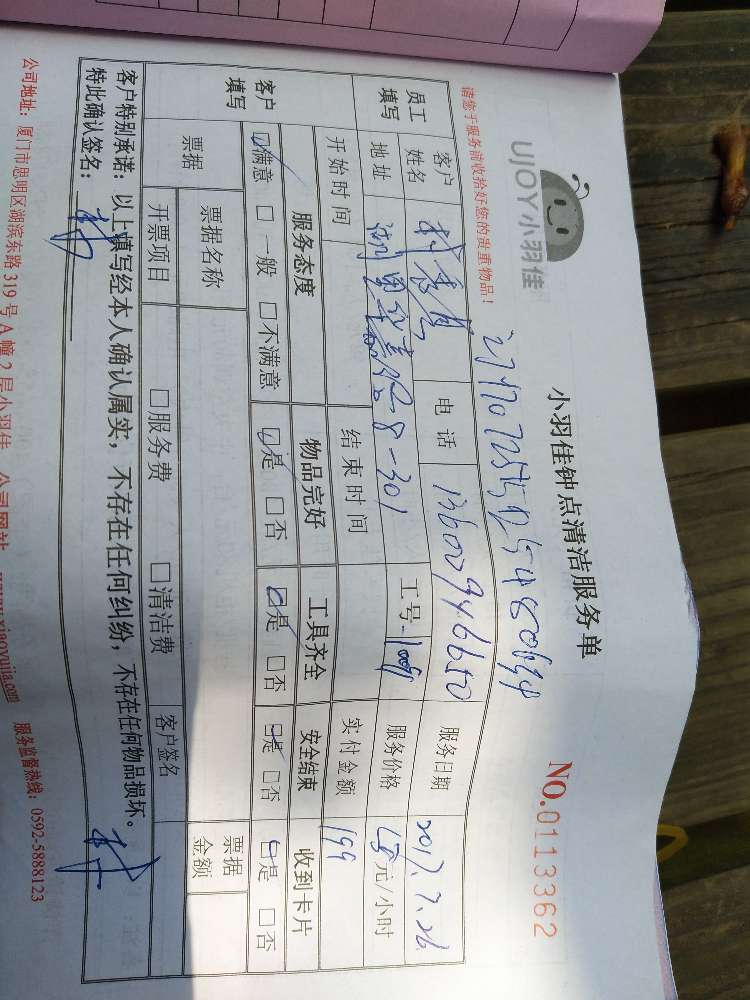 UJOY小羽佳
小羽佳钟点清洁服务单
NO.0113362
请您于服务前收拾好您的贵重物品！
员工填写
客户姓名
电话 13600946650
服务日期 2017.7.26
地址 8-301
工号
服务价格 元/小时
开始时间
结束时间
实付金额 199
客户填写
服务态度 物品完好 工具齐全 安全结束 收到卡片
☑满意 □一般 □不满意 ☑是 □否 ☑是 □否 ☑是 □否 ☑是 □否
票据
票据名称
票据金额
开票项目 □服务费 □清洁费 客户签名
客户特别承诺：以上填写经本人确认属实，不存在任何纠纷，不存在任何物品损坏。
特此确认签名：
公司地址：厦门市思明区湖滨东路319号A幢2层小羽佳 公司网站 www.xiaoyujia.com 服务监督热线：0592-5888123